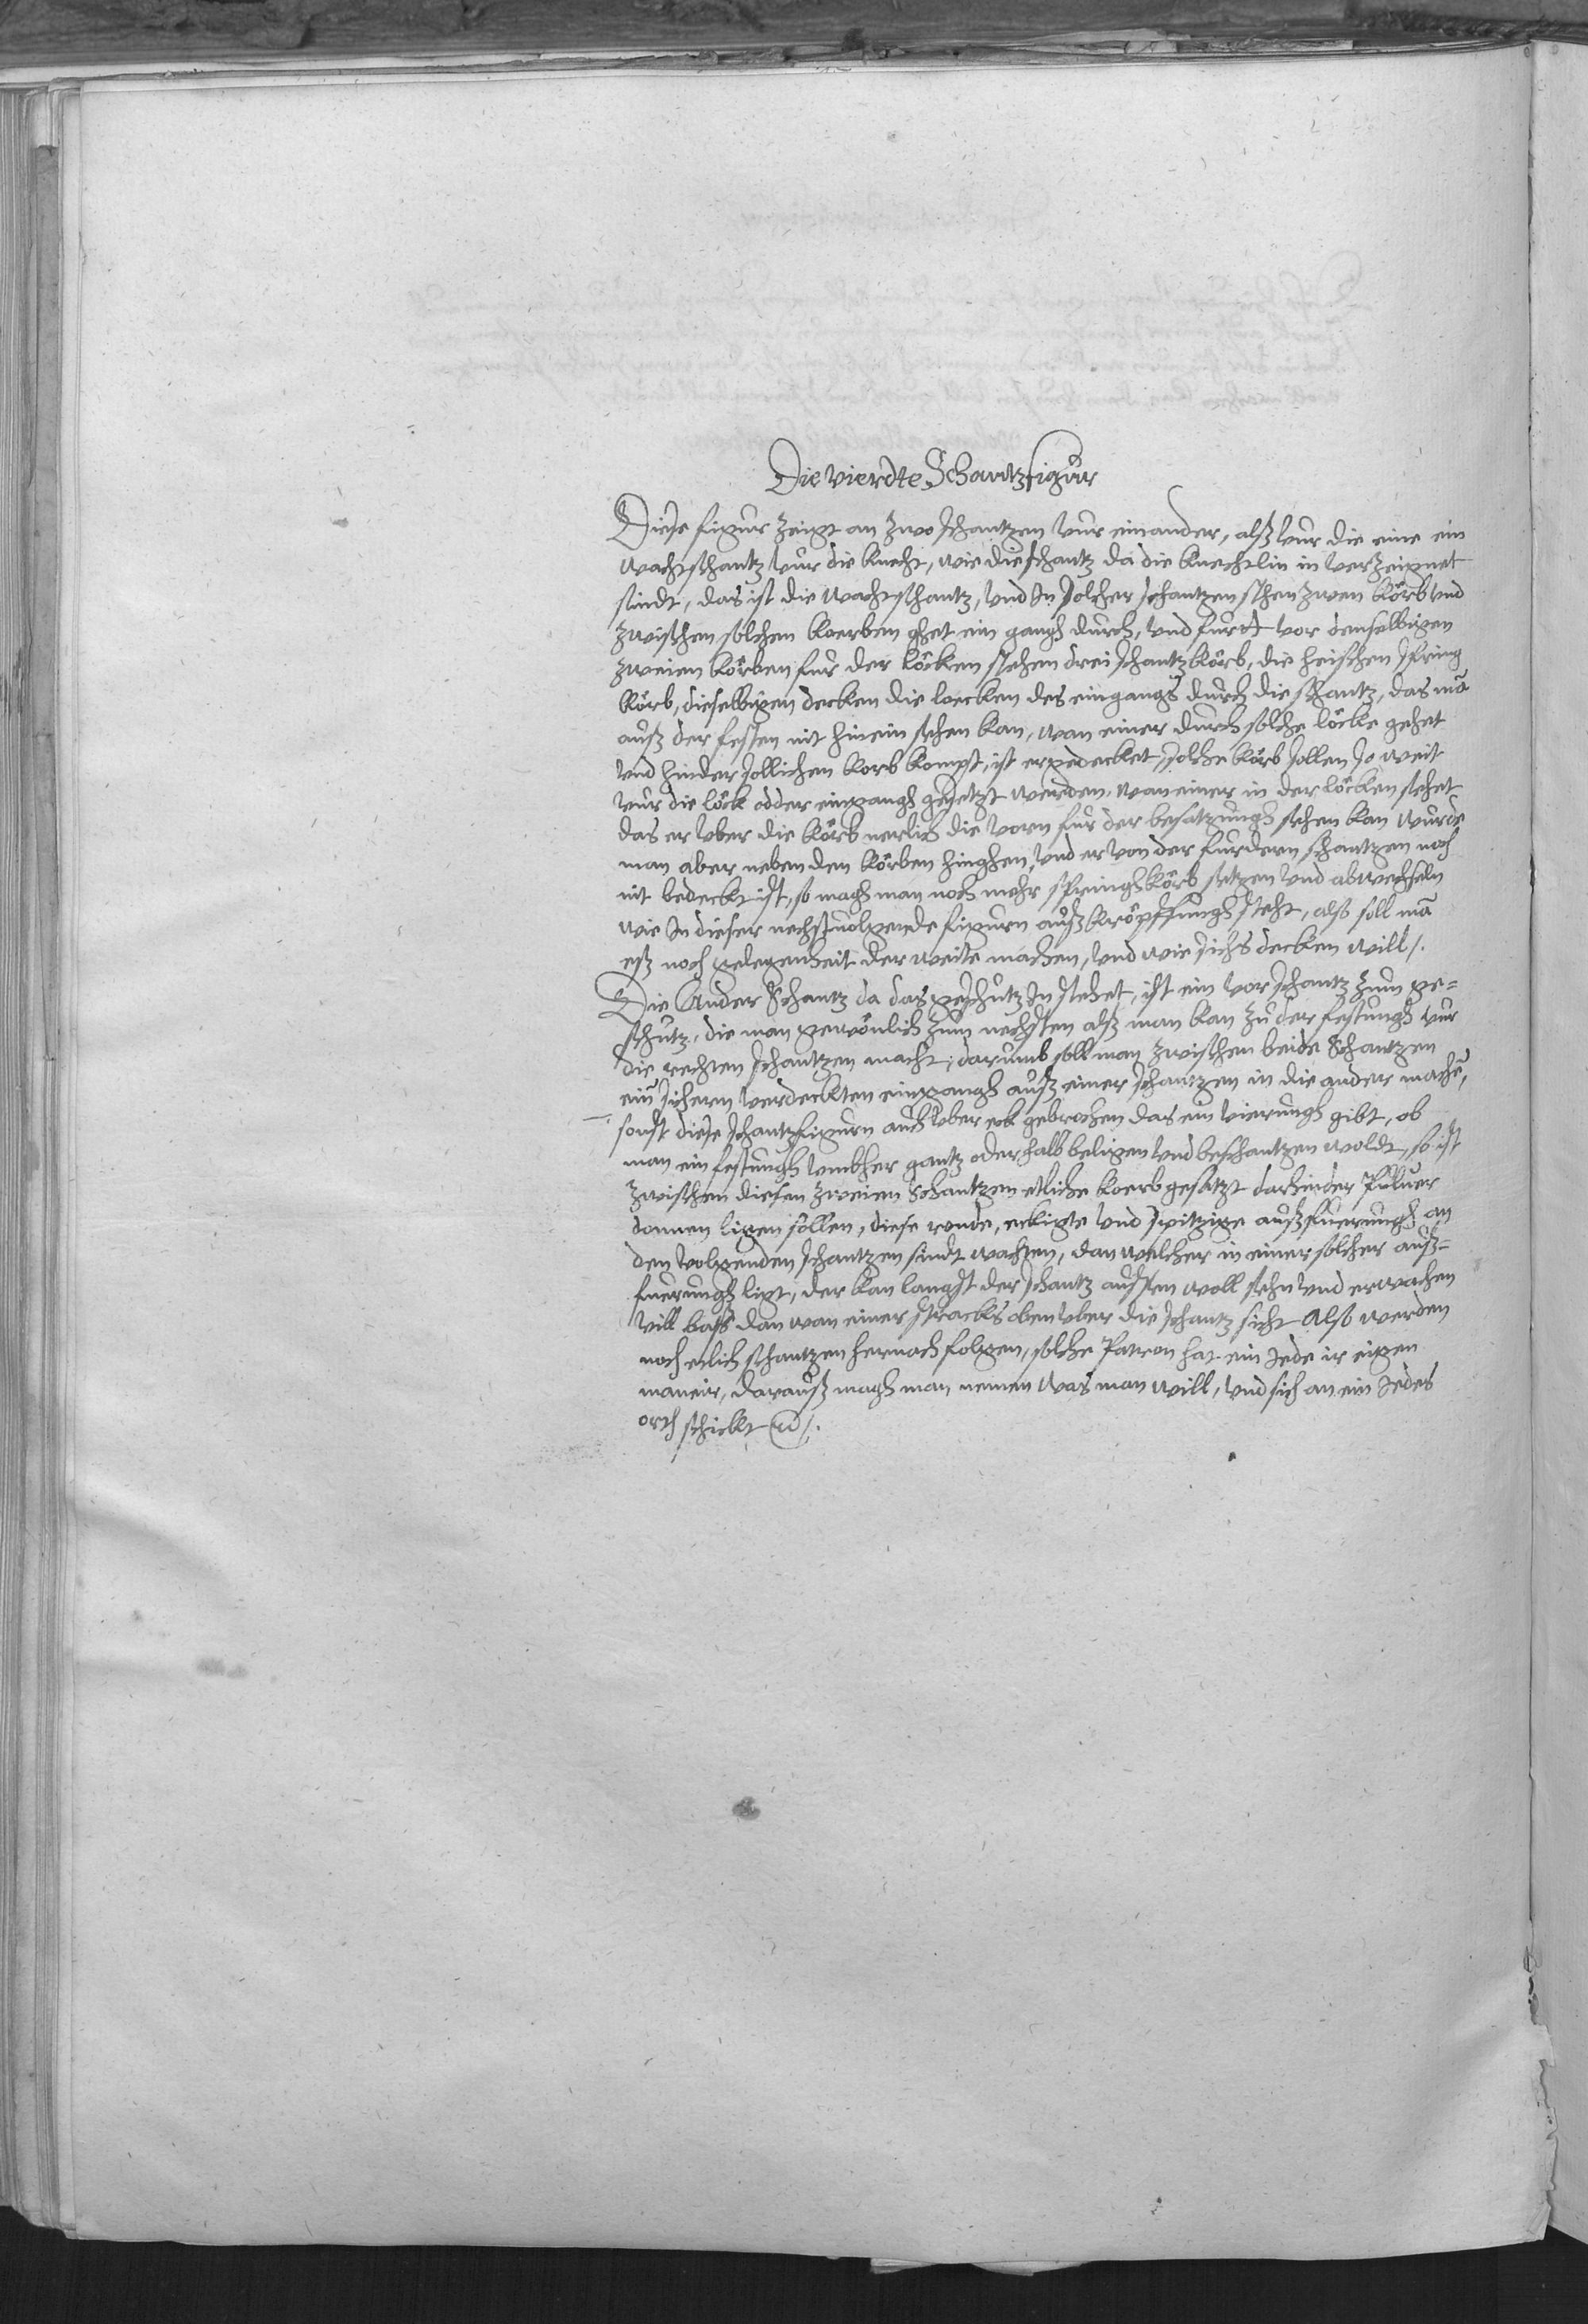 Die vierdte Schantzfigür
Diese figur zeigt an zwo schantzen vur einander, alß vur die eine ein
wachtschantz vur die knecht, wie die schantz da die knechtlin in verzeignet
sindt, das ist die wachtschantz, vnd In solcher schantzen sthen zwen körb vnd
zwischen solchen koerben ghet ein gangh durch, vnd furt vor denselbigen
zweien körben fur der löcken stehen drei schantzkörb, die heischen spring
körb, dieselbigen decken die loecken des eingangs durch die schantz, das mā
auß der festen nit hinein sehen kan, wan einer durch solche löcke gehet
vnd hinder sollichen korb kompt, ist er gedecket, solche körb sollen so weit
vur die löck odder eingangh gesetzt werden. wan einer in der löcken stehet
das er vber die körb nerlich die vorn fur der besatzungh sehen kan wurde
man aber neben den körben hinghen, vnd er von der fürdern schantzen noch
nit bedeckt ist, so magh man noch mehr springhkörb setzen vnd abwechseln
wie In dieser nechstuolgende figurn außkröpffungh steht, also soll mā
eß noch gelegenheit der weite machen, vnd wie sichs decken will /.
Die Ander Schantz da das geschutz In stehet, ist ein vorschantz zum ge=
schutz, die man gewönlich zum nechsten alß man kan zu der festungh vur
die rechten schantzen macht, darumb soll man zwischen beide Schantzen
ein sichern verdeckten eingangh auß einer schantzen in die ander machē,
sonst diese schantzfigurn auch vber eck gebrochen das ein vierungh gibt, ob
man ein festungh vmbher gantz oder halb beligen vnd beschantzen woldt, so ist
zwischen diesen zweien Schantzen etliche koerb gesatzt darhinder Puluer
donnen ligen sollen, diese ronde, eckigte vnd spitzige außfuerungh an
den volgenden schantzen sindt wachten, dan welcher in einer solcher auß=
fuerungh ligt, der kan langst der schantz aussen woll sehn vnd erwachen
vill baß dan wan einer stracks oben vber die schantz sicht Also werden
noch etlich schantzen hernach folgen, solche Patron hat ein Jede ir eigen
maneir, darauß magh man nemen was man will, vnd sich an ein Jedes
orth schickt /.